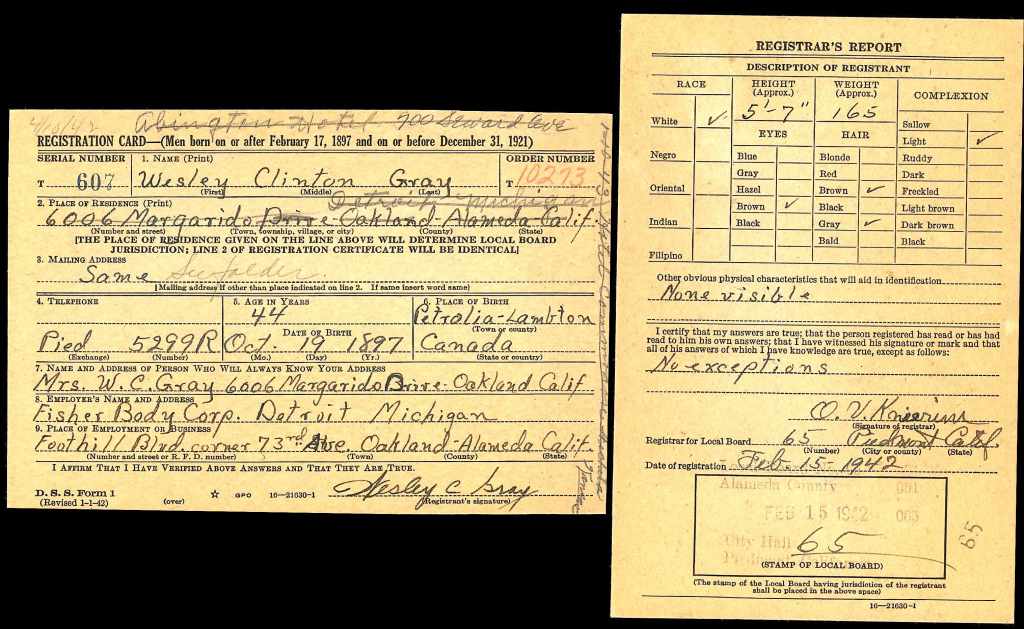 4/6/42 Abington Hotel 700 Seward Ave
REGISTRATION CARD—(Men born on or after February 17, 1897 and on or before December 31, 1921)
SERIAL NUMBER 1. NAME (Print) ORDER NUMBER
T 607 Wesley Clinton Gray T 10273
(First) (Middle) (Last)
Detroit Michigan
2. PLACE OF RESIDENCE (Print)
6006 Margarido Drive Oakland-Alameda Calif.
(Number and street) (Town, township, village, or city) (County) (State)
[THE PLACE OF RESIDENCE GIVEN ON THE LINE ABOVE WILL DETERMINE LOCAL BOARD
JURISDICTION; LINE 2 OF REGISTRATION CERTIFICATE WILL BE IDENTICAL]
3. MAILING ADDRESS
Same See folder.
[Mailing address if other than place indicated on line 2. If same insert word same]
4. TELEPHONE 5. AGE IN YEARS 6. PLACE OF BIRTH
44 Petrolia-Lambton
DATE OF BIRTH (Town or county)
Pied 5299R Oct. 19 1897 Canada
(Exchange) (Number) (Mo.) (Day) (Yr.) (State or country)
7. NAME AND ADDRESS OF PERSON WHO WILL ALWAYS KNOW YOUR ADDRESS
Mrs. W. C. Gray 6006 Margarido Drive-Oakland Calif
8. EMPLOYER'S NAME AND ADDRESS
Fisher Body Corp. Detroit Michigan
9. PLACE OF EMPLOYMENT OR BUSINESS
Foothill Blvd. corner 73rd Ave. Oakland-Alameda Calif.
(Number and street or R. F. D. number) (Town) (County) (State)
I AFFIRM THAT I HAVE VERIFIED ABOVE ANSWERS AND THAT THEY ARE TRUE.
D. S. S. Form 1
(Revised 1-1-42) (over) ☆ GPO 16—21630-1 Wesley C Gray
(Registrant's signature)
REGISTRAR'S REPORT
DESCRIPTION OF REGISTRANT
RACE HEIGHT (Approx.) WEIGHT (Approx.) COMPLEXION
White ✓ 5'-7" 165 Sallow
EYES HAIR Light ✓
Negro Blue Blonde Ruddy
Gray Red Dark
Oriental Hazel Brown ✓ Freckled
Brown ✓ Black Light brown
Indian Black Gray ✓ Dark brown
Bald Black
Filipino
Other obvious physical characteristics that will aid in identification
None visible
I certify that my answers are true; that the person registered has read or has had
read to him his own answers; that I have witnessed his signature or mark and that
all of his answers of which I have knowledge are true, except as follows:
No exceptions
(Signature of registrar)
Registrar for Local Board 65 Piedmont Calif.
(Number) (City or county) (State)
Date of registration Feb. 15-1942
Alameda County 001
FEB 15 1942 065
City Hall 65
Piedmont, Calif.
(STAMP OF LOCAL BOARD)
65
(The stamp of the Local Board having jurisdiction of the registrant
shall be placed in the above space)
16—21630-1